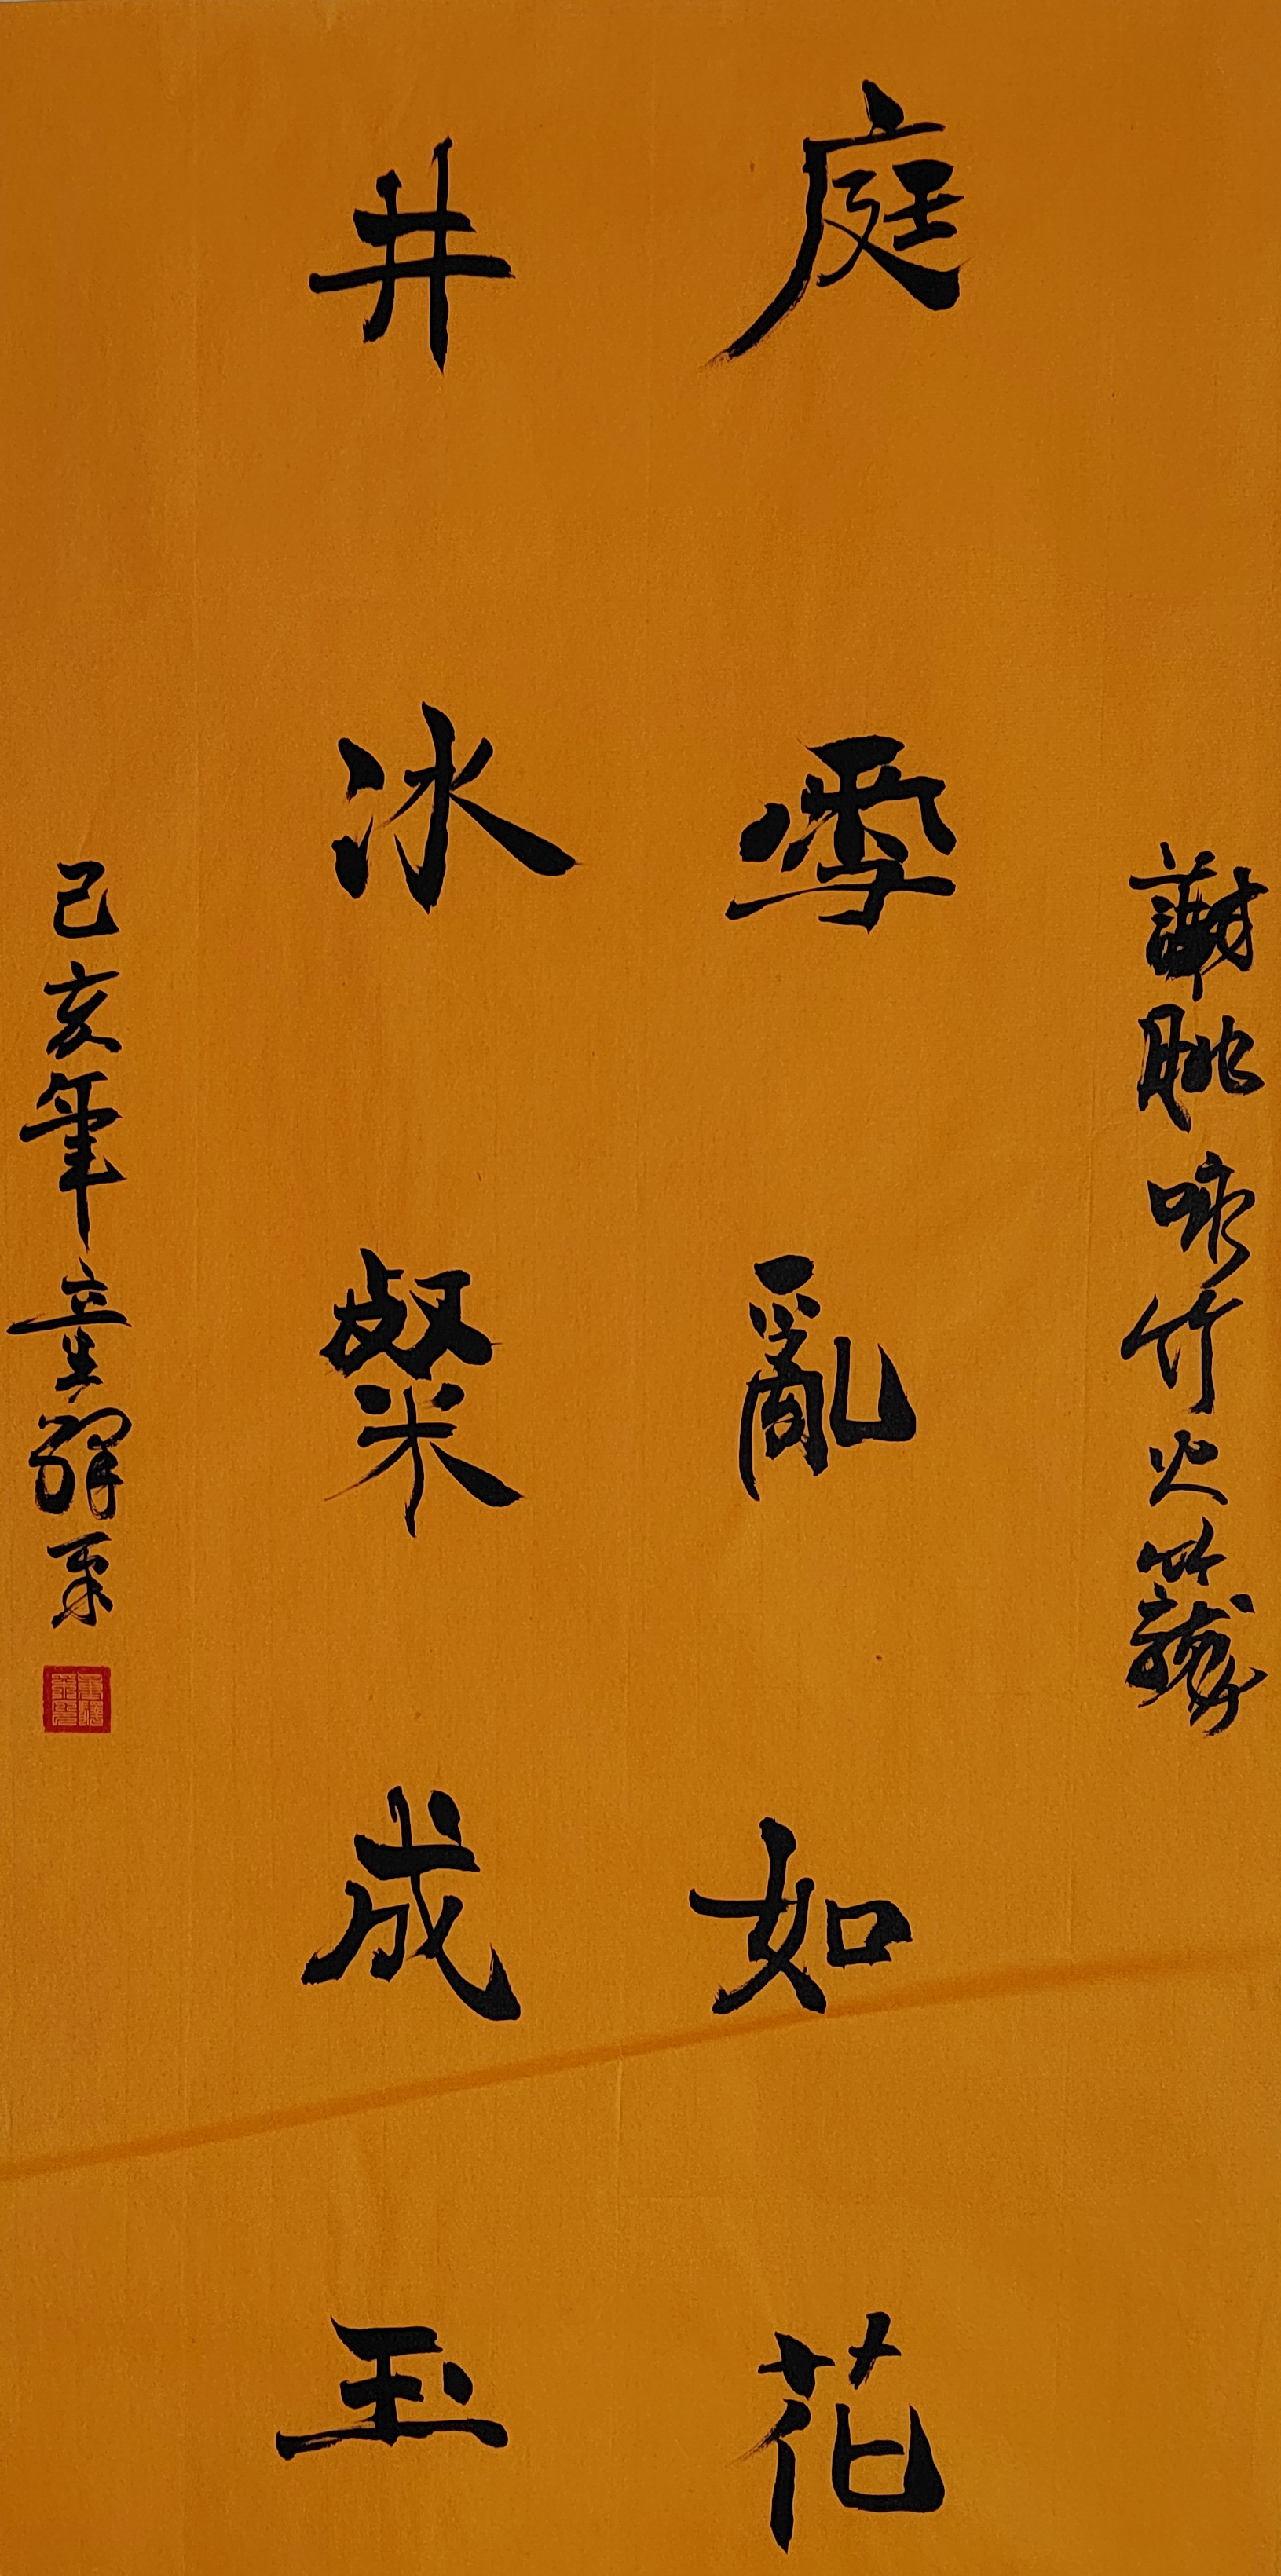 謝朓咏竹火籠
庭雪亂如花
井冰粲成玉
己亥年童